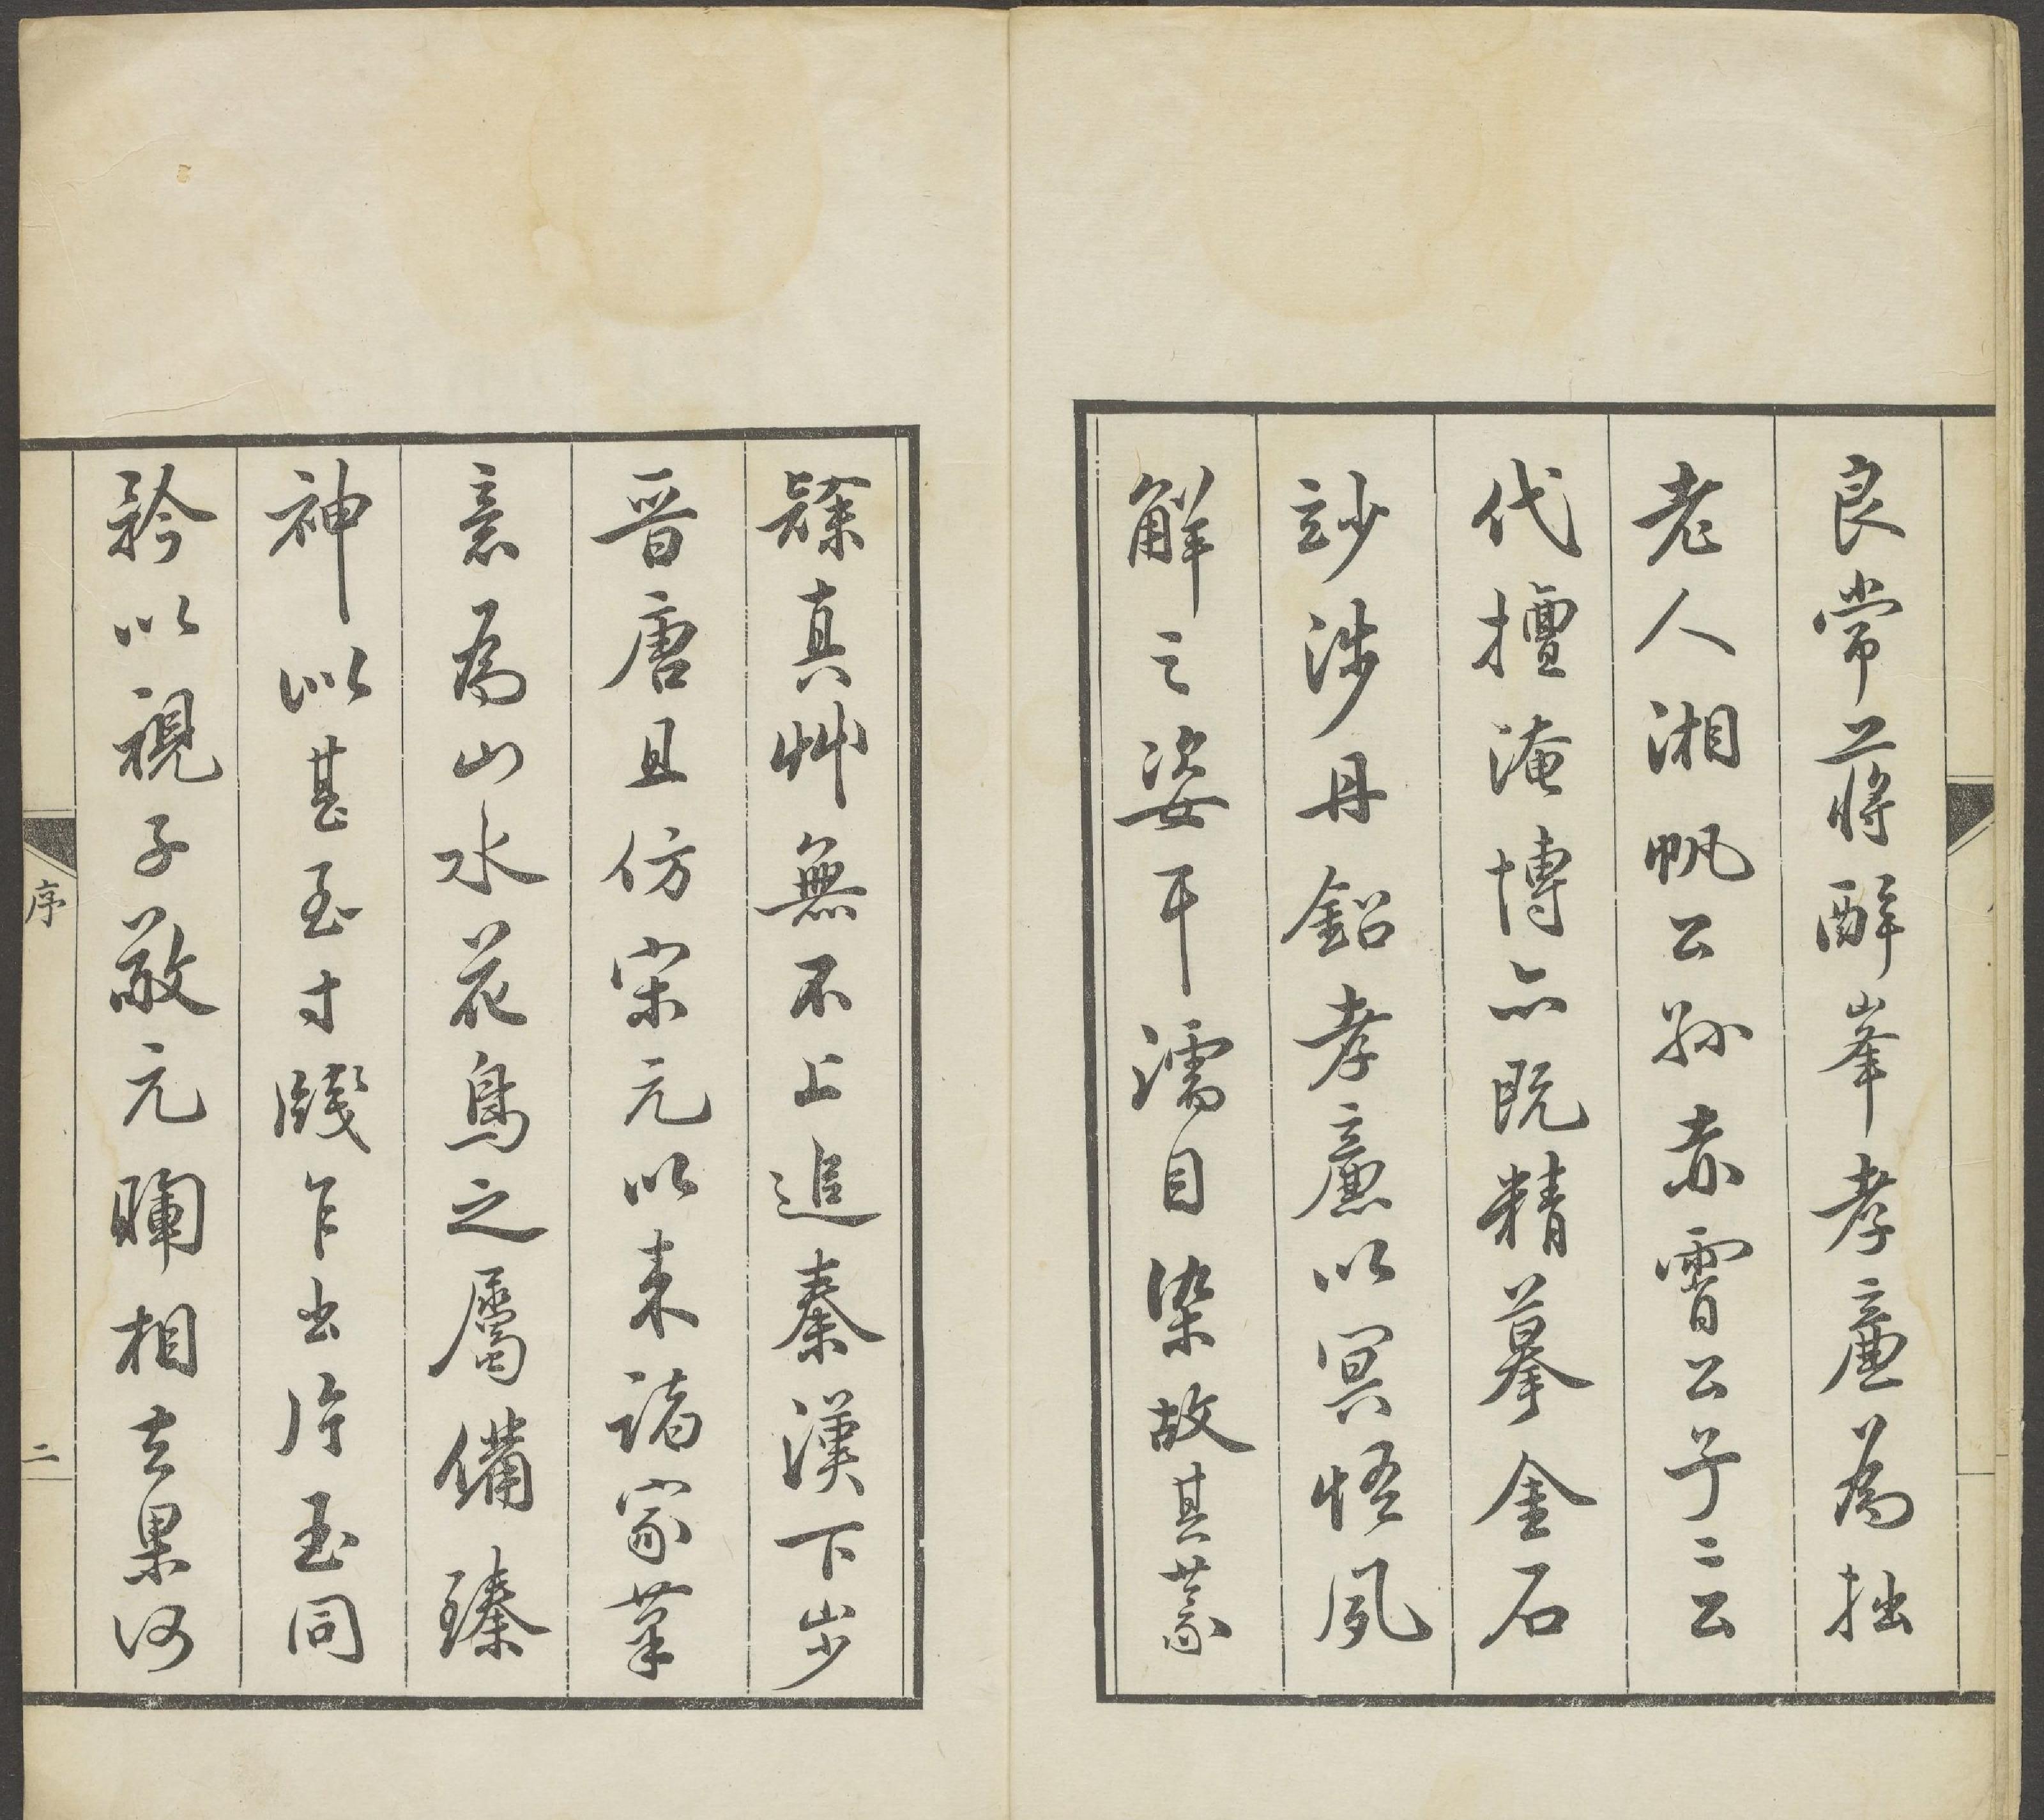 良常蔣醉峯孝廉為拙
老人湘帆公孫赤霄公子二公
代擅淹博亦既精摹金石
玅涉丹鉛孝廉以冥悟夙
解之姿耳濡目染故其篆
隸真艸無不上追秦漢下步
晉唐且仿宋元以來諸家筆
意為山水花鳥之屬備臻
神似甚至寸牋乍出片玉同
矜以視子敬元暉相去果何
序
二